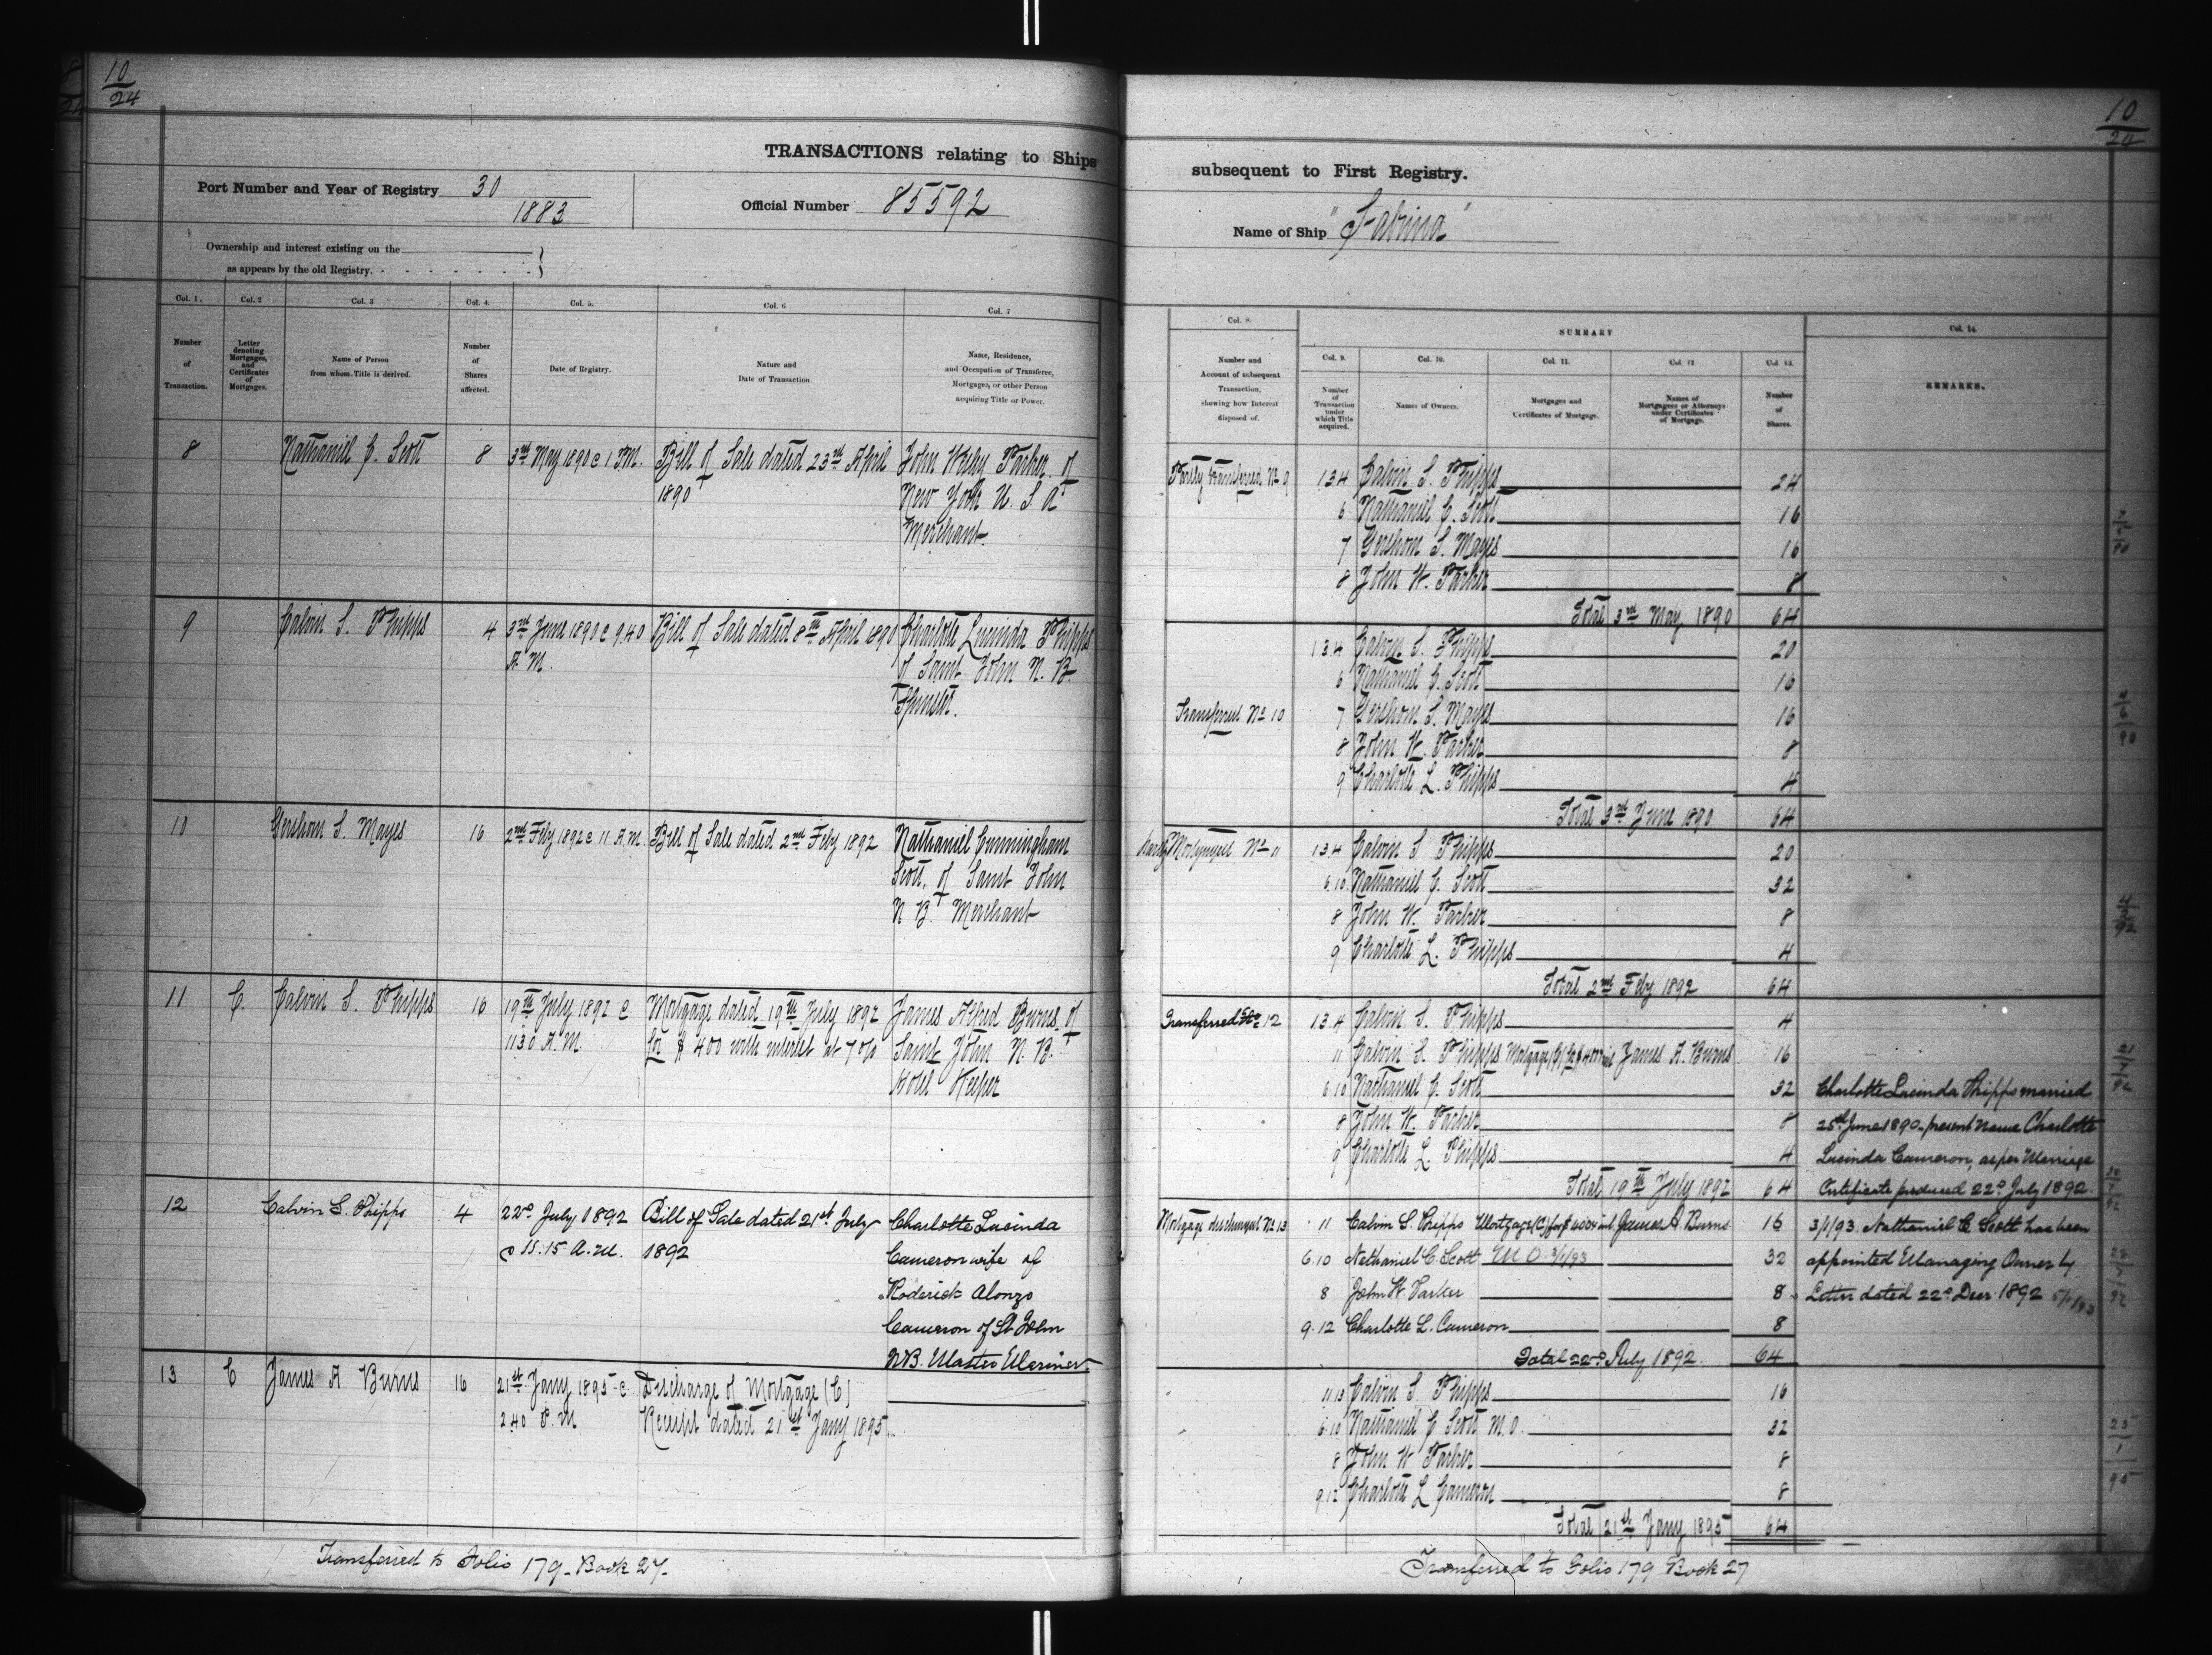 10
24
TRANSACTIONS relating to Ships
Port Number and Year of Registry 30
1883
Official Number 85592
Ownership and interest existing on the
as appears by the old Registry.
Col. 1. Col. 2 Col. 3 Col. 4. Col. 5. Col. 6 Col. 7
Number
of
Transaction.
Letter
denoting
Mortgages,
and
Certificates
of
Mortgages.
Name of Person
from whom Title is derived.
Number
of
Shares
affected.
Date of Registry.
Nature and
Date of Transaction.
Name, Residence,
and Occupation of Transferee,
Mortgagee, or other Person
acquiring Title or Power.
8
Nathaniel C. Scott
8
3rd May 1890 @ 1 P.M.
Bill of Sale dated 23rd April
1890
John Wesley Parker of
New York U. S. A
Merchant.
9
Calvin S. Phipps
4
3rd June 1890 @ 9.40
A.M.
Bill of Sale dated 8th April 1890
Charlotte Lucinda Phipps
of Saint John N. B.
Spinster.
10
Gershom S. Mayes
16
2nd Feby 1892 @ 11 A.M.
Bill of Sale dated 2nd Feby 1892
Nathaniel Cunningham
Scott, of Saint John
N B. Merchant
11
C.
Calvin S. Phipps
16
19th July 1892 @
11.30 A.M.
Mortgage dated 19th July 1892
for $400 with interest at 7 o/o
James Alfred Burns of
Saint John N. B.
Hotel Keeper
12
Calvin S. Phipps
4
22nd July 1892
@ 11.15 A.M.
Bill of Sale dated 21st July
1892
Charlotte Lucinda
Cameron wife of
Roderick Alonzo
Cameron of St John
N.B. Master Mariner
13
C
James A Burns
16
21st Jany 1895 @
2.40 P.M
Discharge of Mortgage (C)
Receipt dated 21st Jany 1895
Transferred to Folio 179. Book 27.
10
24
subsequent to First Registry.
Name of Ship "Sabrina"
Col. 8.
SUMMARY
Col. 9. Col. 10. Col. 11. Col. 12 Col. 13. Col. 14.
Number and
Account of subsequent
Transaction,
showing how Interest
disposed of.
Number
of
Transaction
under
which Title
acquired.
Names of Owners.
Mortgages and
Certificates of Mortgage.
Names of
Mortgagees or Attorneys
under Certificates
of Mortgage.
Number
of
Shares.
REMARKS.
Partly transferred No 9
1.3.4 Calvin S. Phipps 24
6 Nathaniel C. Scott 16
7 Gershom S. Mayes 16
8 John W. Parker 8
Total 3rd May 1890 64
1.3.4 Calvin S. Phipps 20
6 Nathaniel C. Scott 16
Transferred No 10
7 Gershom S. Mayes 16
8 John W. Parker 8
9 Charlotte L. Phipps 4
Total 3rd June 1890 64
Partly Mortgaged No 11
1.3.4 Calvin S Phipps 20
6.10 Nathaniel C. Scott 32
8 John W. Parker 8
9 Charlotte L. Phipps 4
Total 2nd Feby 1892 64
Transferred No 12
1.3.4 Calvin S. Phipps 4
11 Calvin S. Phipps Mortgage (C) for $400 int James A. Burns 16
6.10 Nathaniel C. Scott 32
8 John W. Parker 8
9 Charlotte L. Phipps 4
Total 19th July 1892 64
Charlotte Lucinda Phipps married
25th June 1890. present name Charlotte
Lucinda Cameron, as per Marriage
Certificate produced 22nd July 1892.
Mortgage discharged No 13
11 Calvin S. Phipps Mortgage (C) for $400 int James A. Burns 16
6.10 Nathaniel C. Scott M O. 3/1/93 32
8 John W. Parker 8
9.12 Charlotte L. Cameron 8
Total 22nd July 1892. 64
3/1/93. Nathaniel C. Scott has been
appointed Managing Owner by
Letter dated 22nd Decr 1892 5/1/93
11.13 Calvin S. Phipps 16
6.10 Nathaniel C Scott M.O. 32
8 John W Parker 8
9.12 Charlotte L Cameron 8
Total 21st Jany 1895 64
25
1
95
Transferred to Folio 179 Book 27